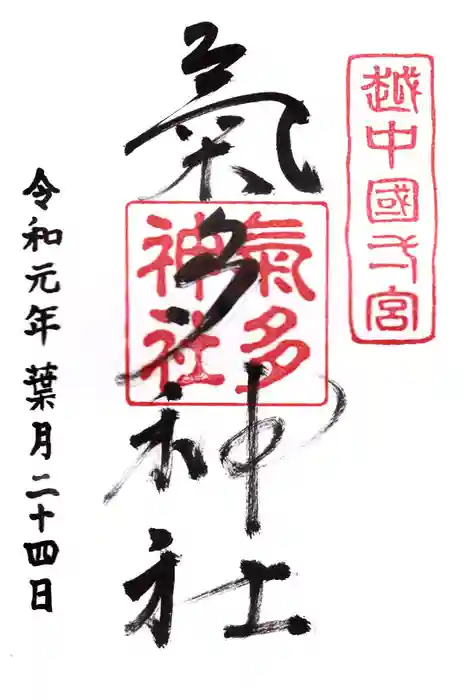 越中國弌宮
氣多神社
氣多
神社
令和元年 葉月二十四日